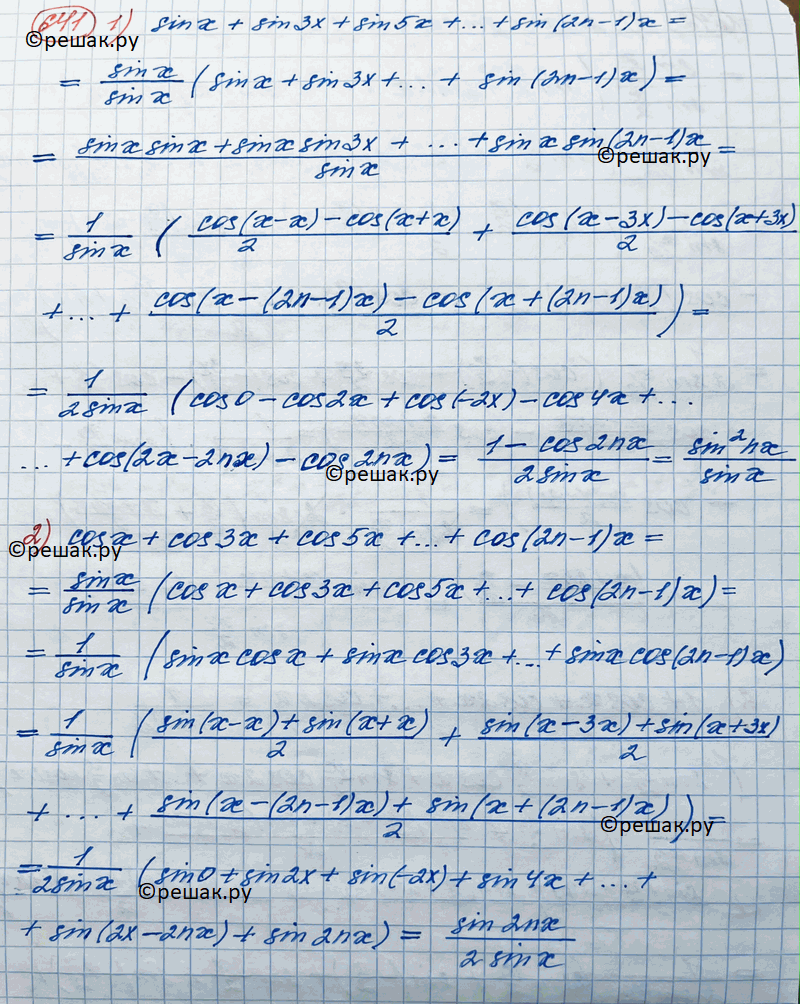 641 1) sin x + sin 3x + sin 5x + ... + sin (2n-1)x =
©решак.ру
= sin x / sin x (sin x + sin 3x + ... + sin (2n-1)x) =
= sin x sin x + sin x sin 3x + ... + sin x sin (2n-1)x / sin x =
©решак.ру
= 1 / sin x ( cos(x-x) - cos(x+x) / 2 + cos(x-3x) - cos(x+3x) / 2
+ ... + cos(x-(2n-1)x) - cos(x+(2n-1)x) / 2 ) =
= 1 / 2 sin x (cos 0 - cos 2x + cos(-2x) - cos 4x + ...
... + cos(2x-2nx) - cos 2nx) = 1 - cos 2nx / 2 sin x = sin² nx / sin x
©решак.ру
2) cos x + cos 3x + cos 5x + ... + cos (2n-1)x =
©решак.ру
= sin x / sin x (cos x + cos 3x + cos 5x + ... + cos(2n-1)x) =
= 1 / sin x (sin x cos x + sin x cos 3x + ... + sin x cos(2n-1)x)
= 1 / sin x ( sin(x-x) + sin(x+x) / 2 + sin(x-3x) + sin(x+3x) / 2
+ ... + sin(x-(2n-1)x) + sin(x+(2n-1)x) / 2 ) =
©решак.ру
= 1 / 2 sin x (sin 0 + sin 2x + sin(-2x) + sin 4x + ... +
©решак.ру
+ sin(2x-2nx) + sin 2nx) = sin 2nx / 2 sin x